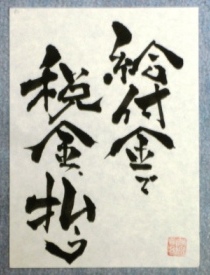 給付金で
税金、払う